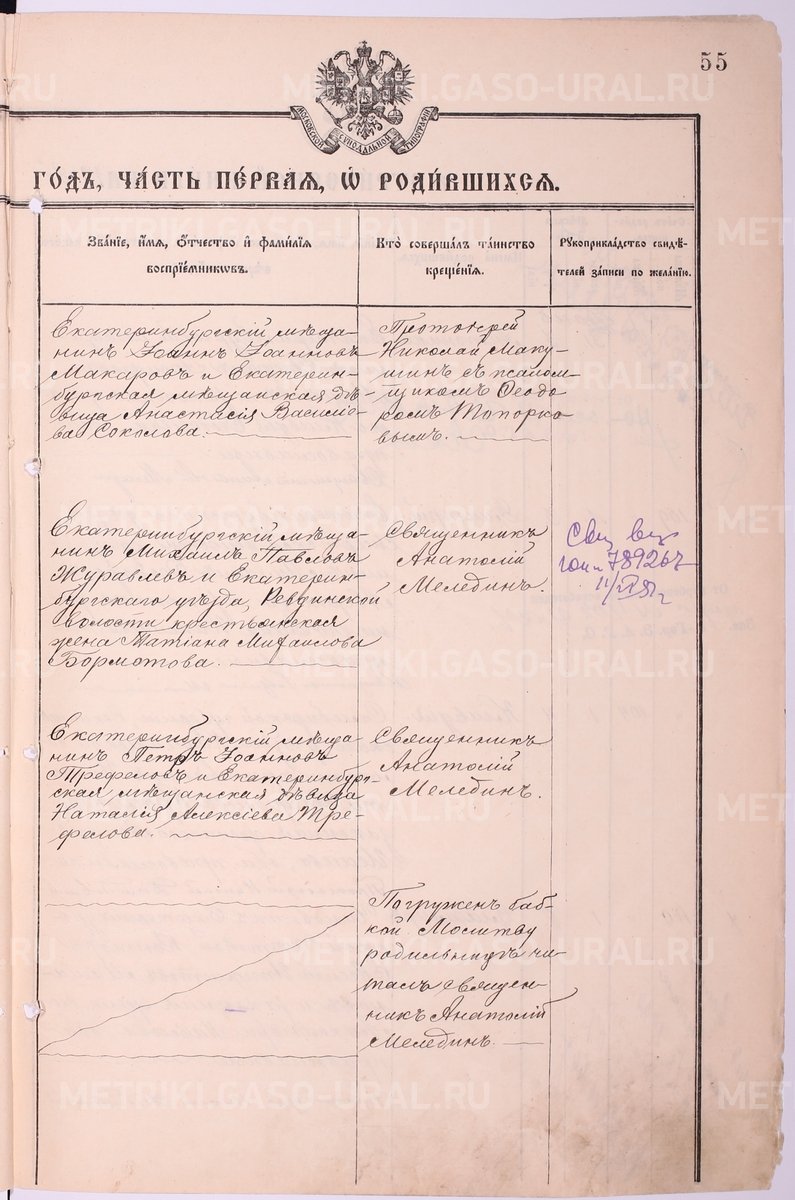 55
МОСКОВСКОЙ СѴНОДАЛЬНОЙ ТИПОГРАФІИ
ГО́ДЪ, ЧА́СТЬ ПЕ́РВАЯ, Ѡ҆ РОДИ́ВШИХСЯ.
Зва́нїе, и҆́мя, ѻ҆́тчество и҆ фами́лїя
воспрїе́мниковъ.
Кто̀ соверша́лъ та́инство
креще́нїя.
Рꙋкоприкла́дство свидѣ́-
телей за́писи по жела́нїю.
Екатеринбургскій мѣща-
нинъ Іоаннъ Іоанновъ
Макаровъ и Екатерин-
бургская мѣщанская дѣ-
вица Анастасія Василіе-
ва Соколова.
Протоіерей
Николай Маку-
шинъ съ псалом-
щикомъ Ѳеодо
ромъ Топорко
вымъ.
Екатеринбургскій мѣща-
нинъ Михаилъ Павловъ
Журавлевъ и Екатерин-
бургскаго уѣзда, Ревдинской
волости крестьянская
жена Татіана Михаилова
Бормотова.
Священникъ
Анатолій
Мелединъ.
789267
Екатеринбургскій мѣща
нинъ Петръ Іоанновъ
Трефеловъ и Екатеринбург-
ская мѣщанская дѣвица
Наталія Алексіева Тре-
фелова.
Священникъ
Анатолій
Мелединъ.
Погруженъ баб-
кой. Молитву
родильницѣ чи-
талъ священ-
никъ Анатолій
Мелединъ.
METRIKI.GASO-URAL.RU